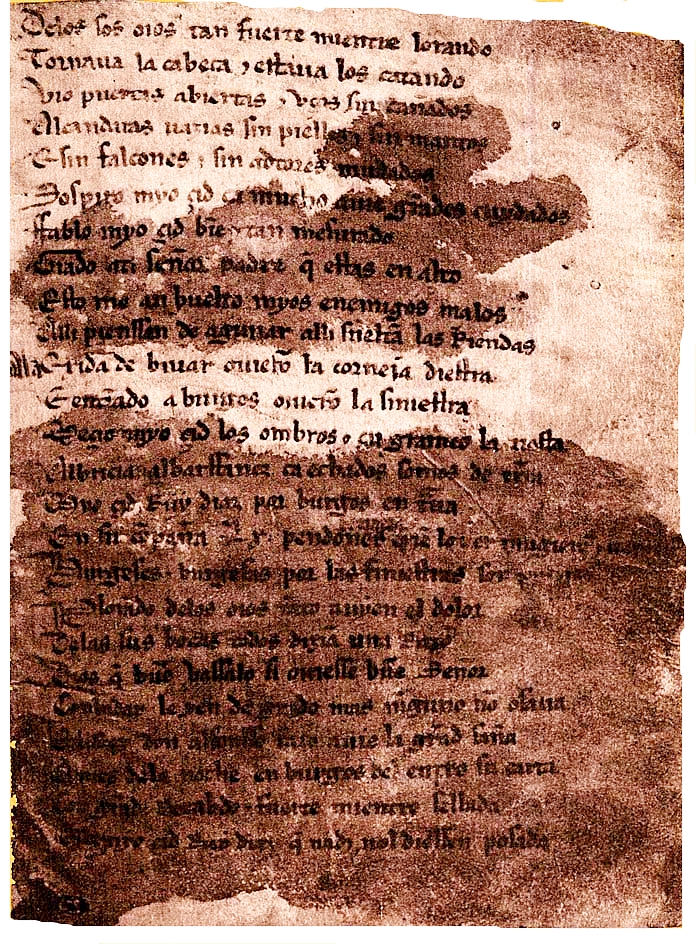 Delos sos oios tan fuerte mientre lorando
Tornaua la cabeça ⁊ estaua los catando
Vio puertas abiertas ⁊ vços sin cañados
Alcandaras uazias sin pielles ⁊ sin mantos
E sin falcones ⁊ sin adtores mudados
Sospiro myo çid ca mucho auie grãdes cuydados
Fablo myo çid biẽ ⁊ tan mesurado
Grado ati señor padre q̃ estas en alto
Esto me an buelto myos enemigos malos
Alli pienssan de aguiiar alli sueltã las Riendas
Ala exida de biuar ouierõ la corneia diestra
E entrãdo a burgos ouierõ la siniestra
Meçio myo çid los ombros ⁊ en grameo la tiesta
Albricia albarffanez ca echados somos de tr̃ra
Myo çid Ruy diaz por burgos en traua
En su cõpaña .Lx. pendones
Burgeses ⁊ burgesas por las finiestras son
Plorando delos oios tanto auyen el dolor
Delas sus bocas todos diziã una Razõ
Dios q̃ buẽ vassalo si ouiesse buẽ Señor
Conbidar le yen de grado mas ninguno nõ osaua
El Rey don alfonsso tanto auie la grãd saña
Antes dela noche en burgos del entro su carta
Con grãd Recabdo ⁊ fuerte mientre sellada
Que a myo çid Ruy diaz q̃ nadi nol diessen posada